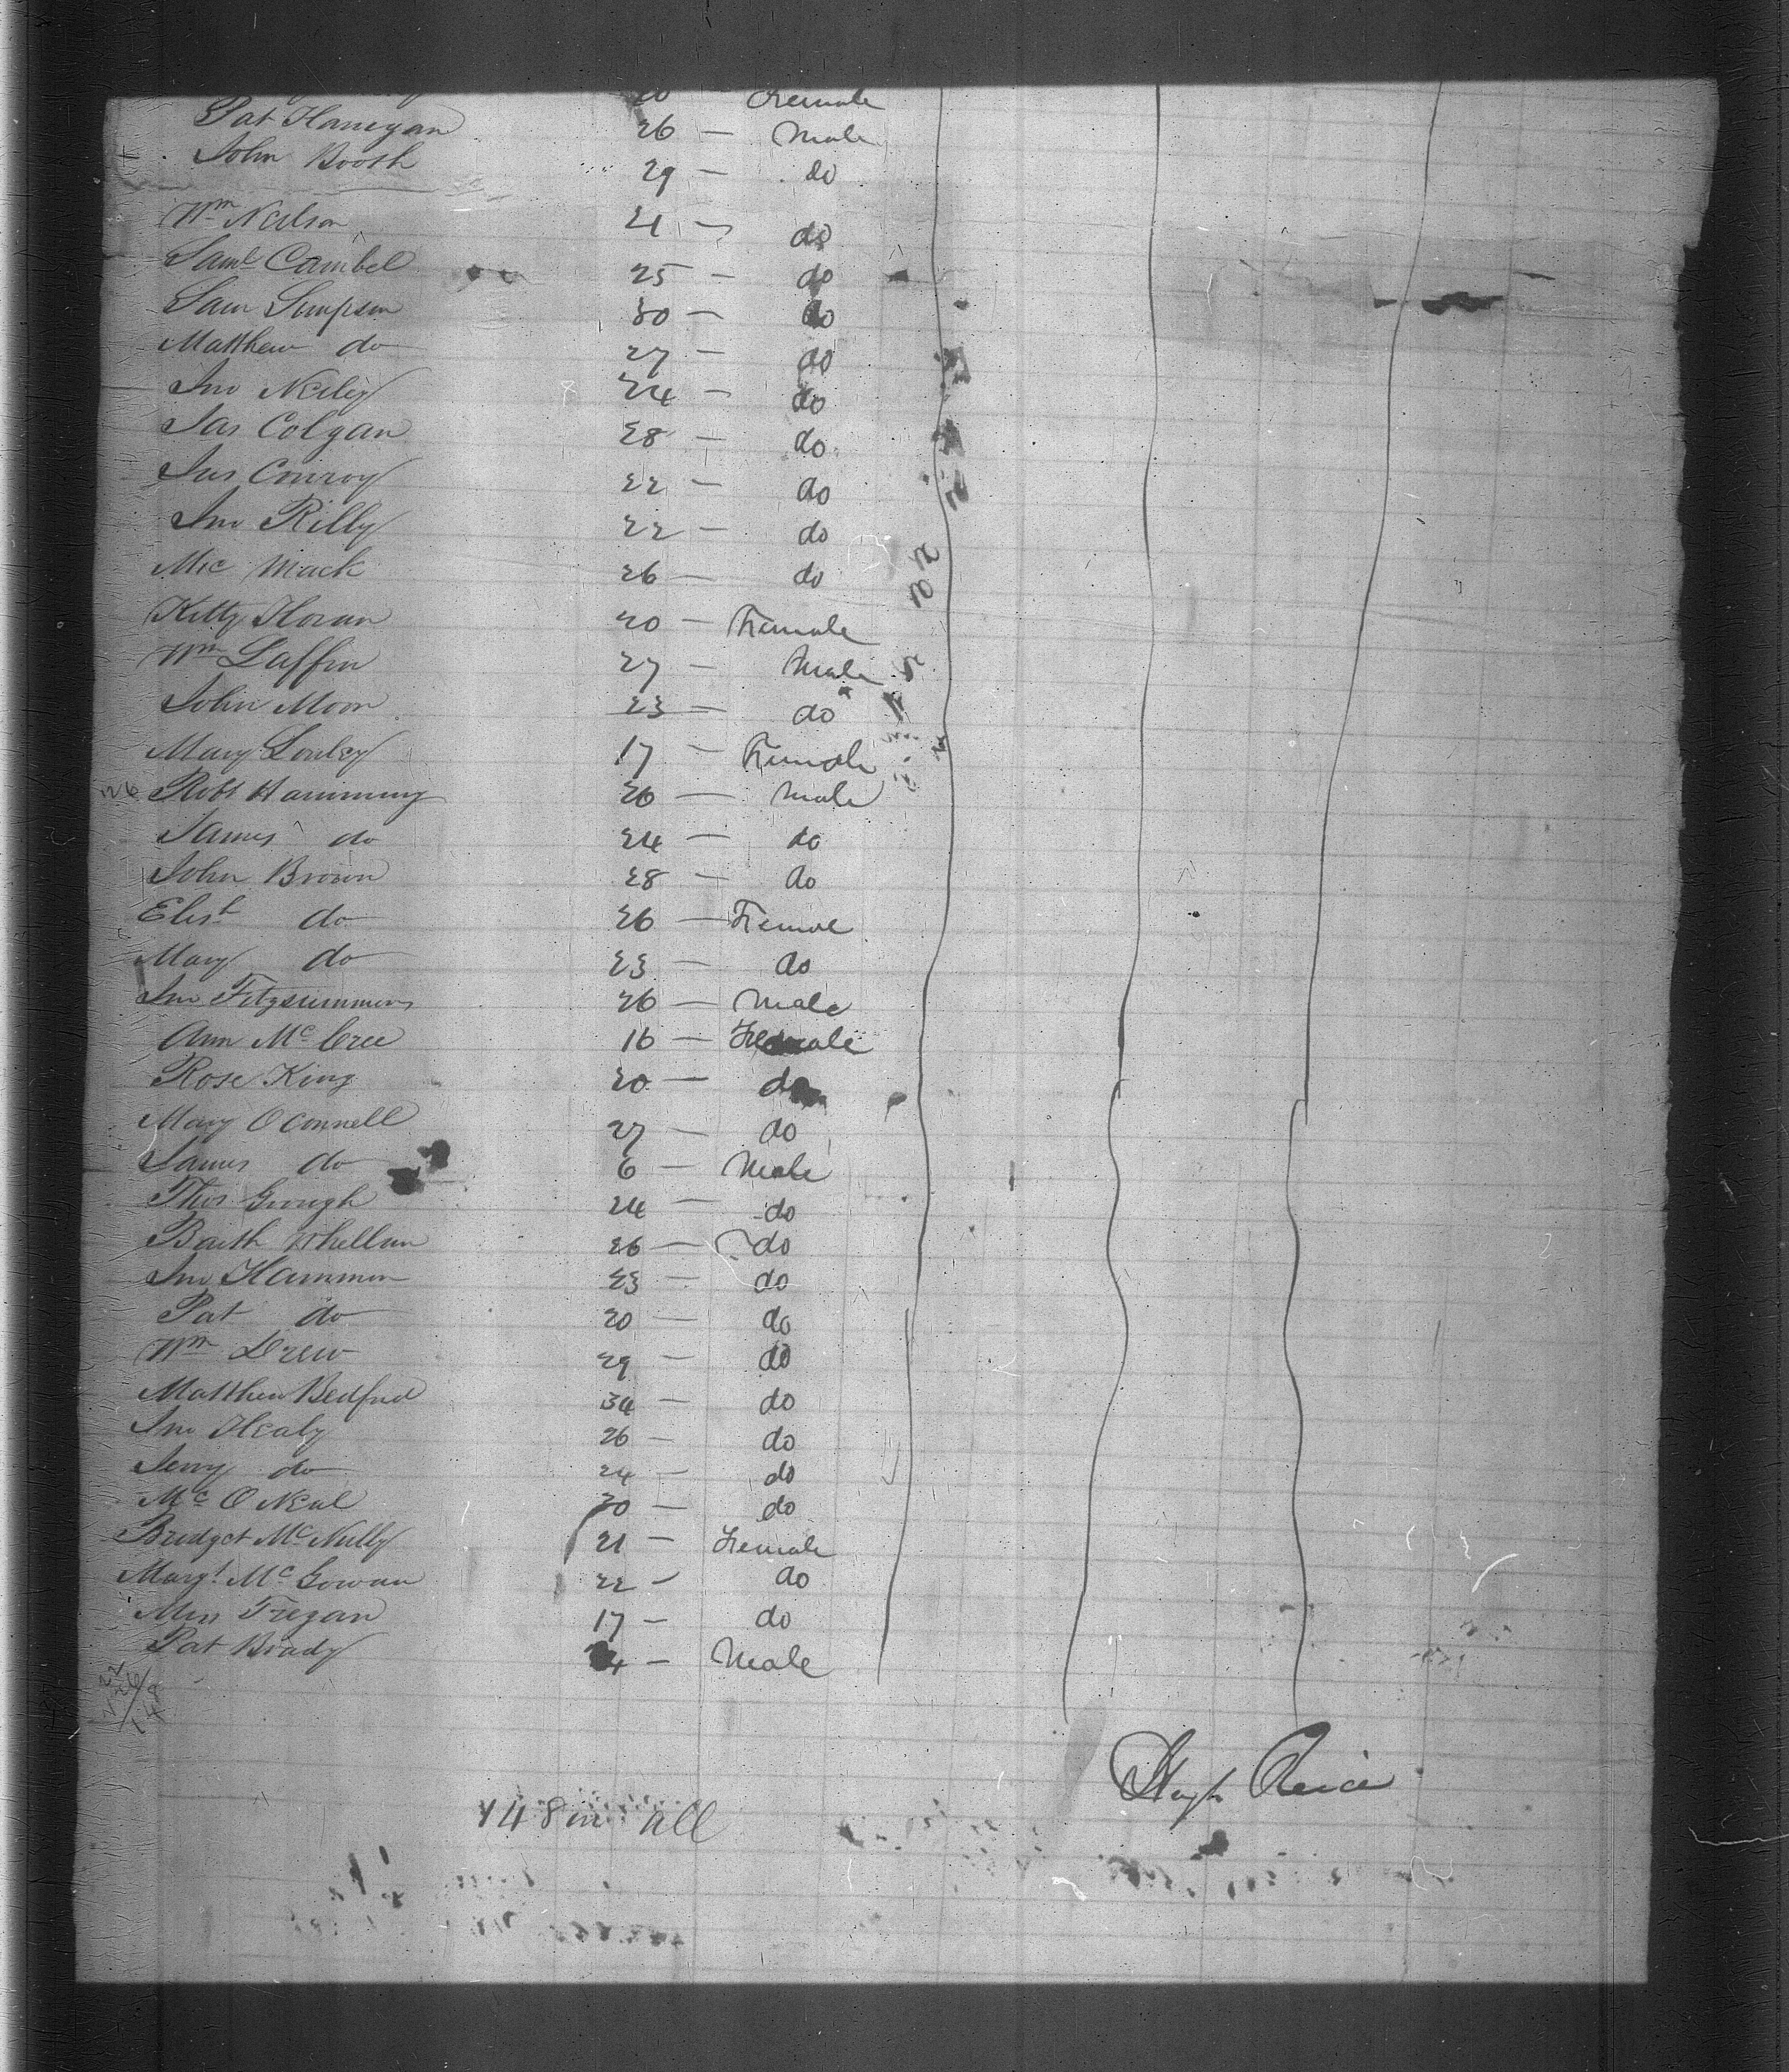 20 Female
Pat Hanegan 26 — Male
John Booth 29 — do
Wm Neilson 21 — do
Saml Cambel 25 — do
Saml Simpson 30 — do
Matthew do 27 — do
Jno Neiley 24 — do
Jas Colgan 28 — do
Jas Conroy 22 — do
Jno Rilly 22 — do
Mic Mack 26 — do
Kitty Horan 20 — Female
Wm Laffin 27 — Male
John Moor 23 — do
Mary 17 — Female
Robt Hamming 26 — Male
James do 24 — do
John Brown 28 — do
Elist do 26 — Female
Mary do 23 — do
Jno Fitzsimmons 26 — Male
Ann McCree 16 — Female
Rose King 20 — do
Mary OConnell 27 — do
James do 6 — Male
Thos Gough 24 — do
Barth Whellan 26 — do
Jno Hammon 23 — do
Pat do 20 — do
Wm Drew 29 — do
Matthew Bedford 34 — do
Jno Healy 26 — do
Jerry do 24 — do
Mc O Neal 30 — do
Bridget McNully 21 — Female
Margt McGowan 22 — do
17 — do
Pat Brady 24 — Male
Hugh
148 in all